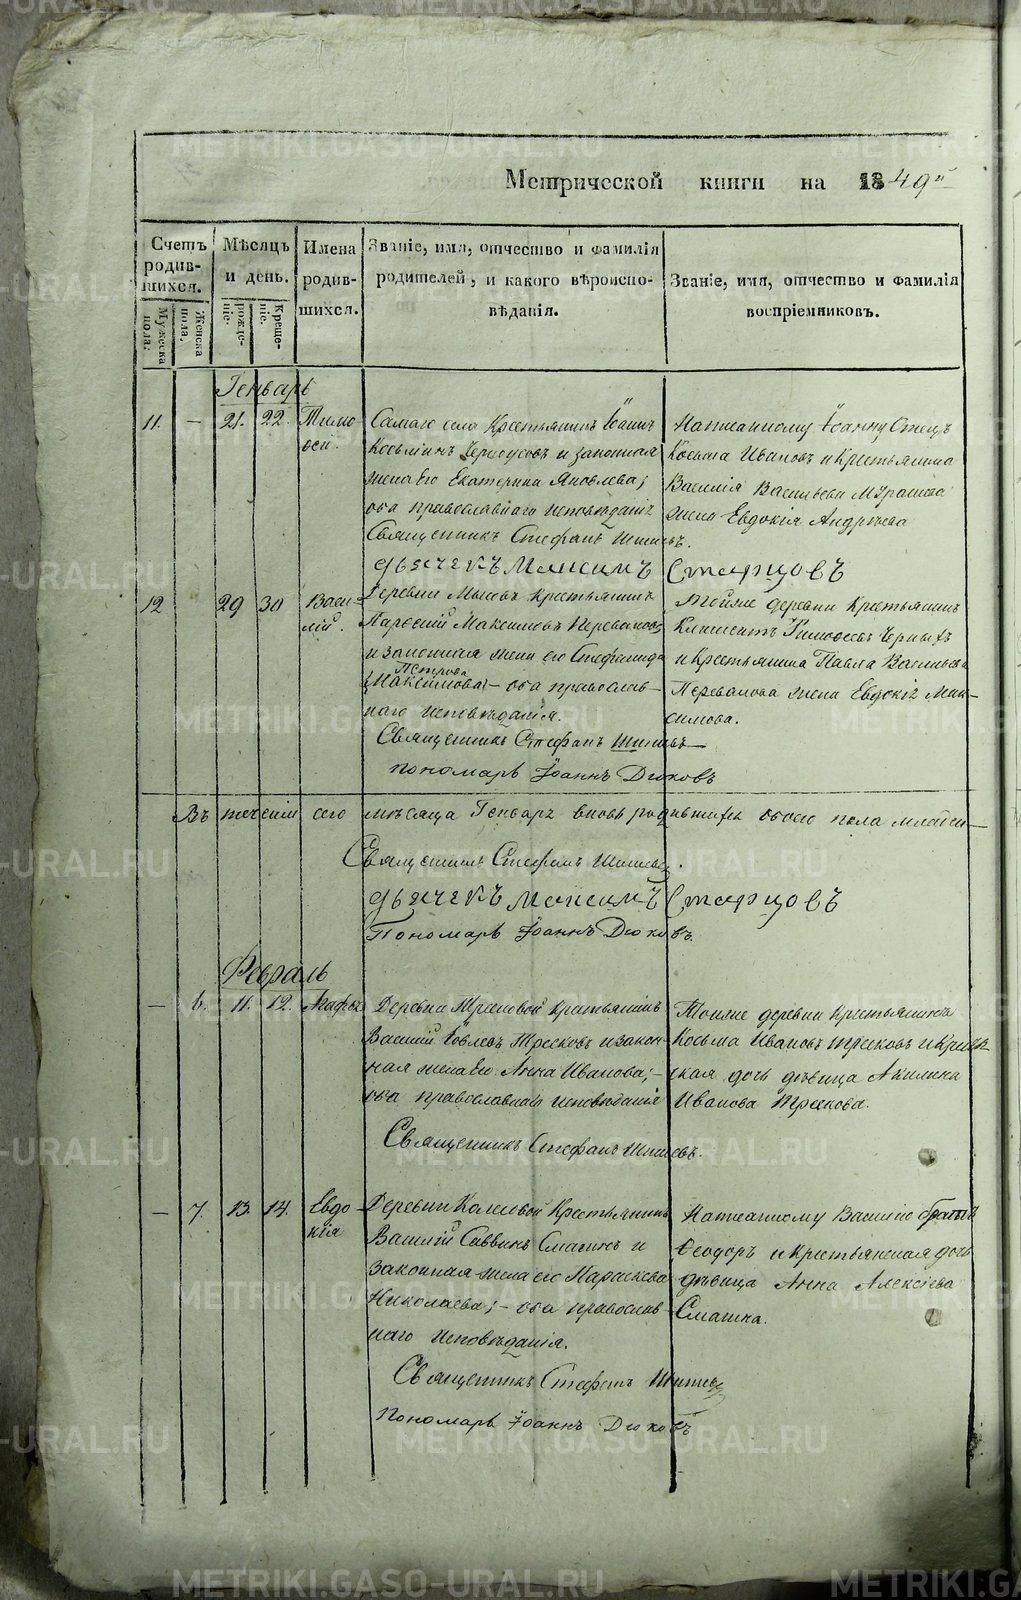 Метрической книги на 1849й
Счетъ родив-шихся.
Мѣсяцъ и день.
Имена родив-шихся.
Званіе, имя, отчество и фамилія
родителей, и какого вѣроиспо-
вѣданія.
Званіе, имя, отчество и фамилія
воспріемниковъ.
Мужеска пола.
Женска пола.
рожде-ніе.
Креще-ніе.
Генварь
11. — 21. 22. Тимо-
ѳей.
Самаго села Крестьянинъ Іоаннъ
Козьминъ и законная
жена его Екатерина Яковлева;
оба православнаго исповѣданія
Священникъ Стефанъ
Дьячекъ Максимъ Старцовъ
Написанному Іоанну Отецъ
Козьма Ивановъ и Крестьянина
Василія Васильева
жена Евдокія Андреева
12 29 30 Васи-
лій.
Деревни Крестьянинъ
Максимовъ Переваловъ
и законная жена его Стефанида
Петрова
Максимова — оба православ-
наго исповѣданія.
Священникъ Стефанъ
Пономарь Іоаннъ Дюковъ
Тойже деревни Крестьянинъ
Климентъ Тимофеевъ Черныхъ
и Крестьянина Павла Васильева
Перевалова жена Евдокія Мак-
симова.
Въ теченіи сего мѣсяца Генваря вновь родившихъ обоего пола
Священникъ Стефанъ
Дьячекъ Максимъ Старцовъ
Пономарь Іоаннъ Дюковъ.
Февраль
— 6. 11. 12. Агафья
Деревни Крестьянинъ
Василій Тресковъ и закон-
ная жена его Анна Иванова; —
оба православнаго исповѣданія
Священникъ Стефанъ
Тойже деревни Крестьянинъ
Козьма Ивановъ Тресковъ и Крестьян-
ская дочь дѣвица Акилина
Иванова Трескова.
— 7. 13. 14. Евдо-
кія
Деревни Крестьянинъ
Василій Саввинъ Смагинъ и
законная жена его Параскева
Николаева; — оба православ-
наго исповѣданія.
Священникъ Стефанъ
Пономарь Іоаннъ Дюковъ
Написанному Василію братъ
Ѳеодоръ и Крестьянская дочь
дѣвица Анна Алексіева
Смагина.
METRIKI.GASO-URAL.RU